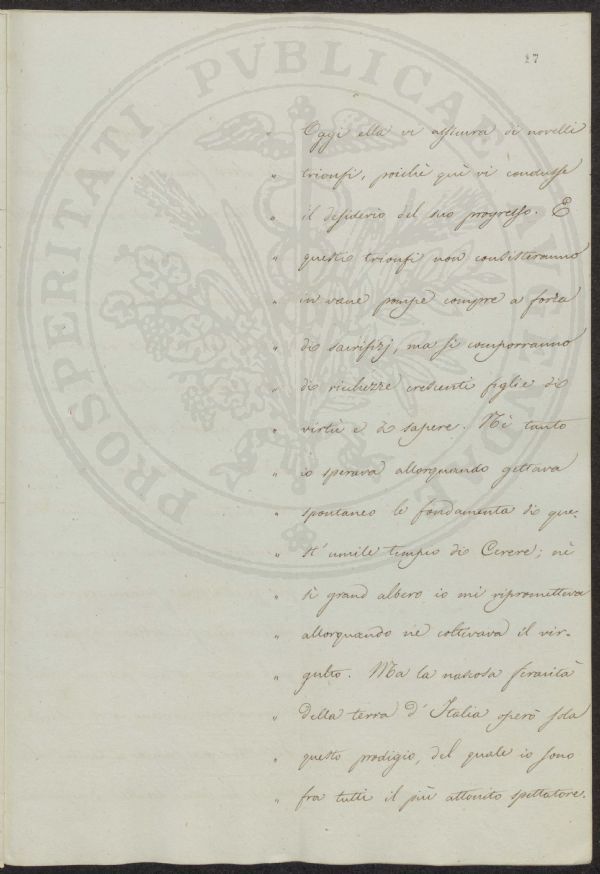 17
" Oggi ella vi assicura di novelli
" trionfi, poichè quì vi condusse
" il desiderio del suo progresso. E
" questi trionfi non consisteranno
" in vane pompe compre a forza
" di sacrifizj, ma si comporranno
" di richezze crescenti figlie di
" virtù e di sapere. Nè tanto
" io sperava allorquando gettava
" spontaneo le fondamenta di que-
" st' umile tempio di Cerere; nè
" sì grand albero io mi riprometteva
" allorquando nè coltivava il vir-
" gulto. Ma la nascosa feracità
" della terra d' Italia operò sola
" questo prodigio, del quale io sono
" fra tutti il più attonito spettatore.
PROSPERITATI PVBLICAE